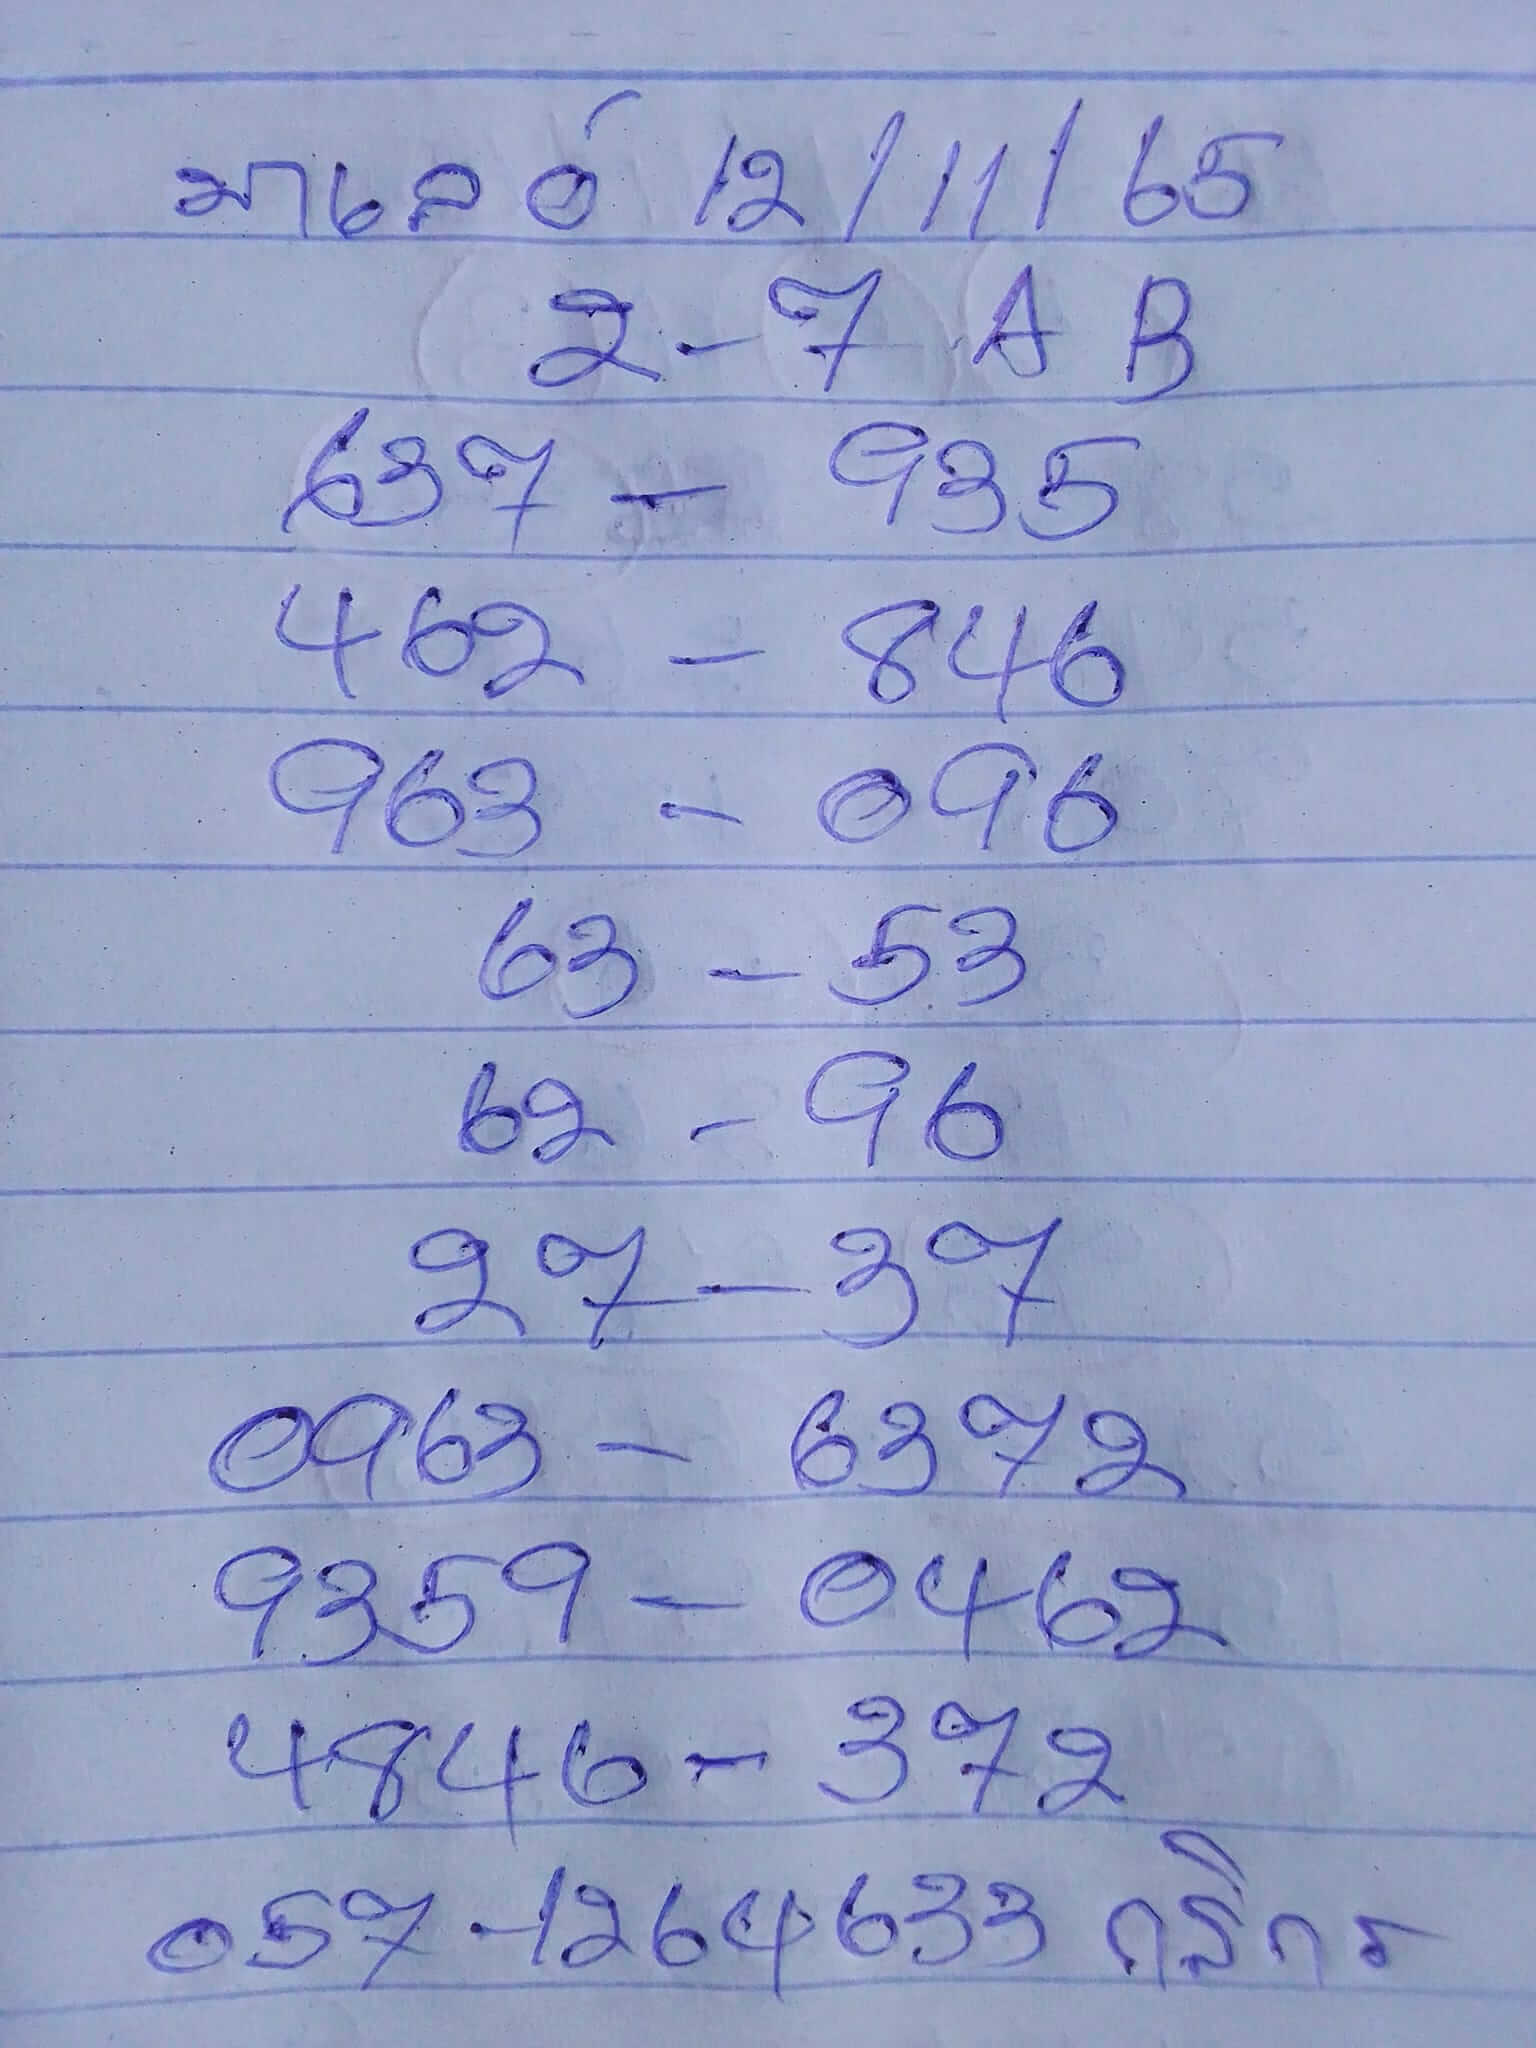 มาเลย์ 12/11/65
2-7 A B
637 - 935
462 - 846
963 - 096
63 - 53
62 - 96
27 - 37
0963 - 6372
9359 - 0462
4846 - 372
057-1264633 กสิกร